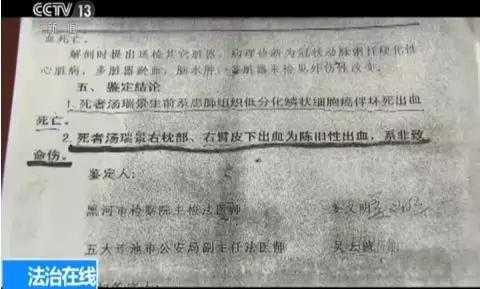 CCTV 13
新闻
血死亡。
解剖时提出送检其它脏器，病理诊断为冠状动脉粥样硬化性
心脏病，多脏器淤血，脑水肿，各脏器未检见外伤性改变。
五、鉴定结论
1.死者汤瑞景生前系患肺组织低分化鳞状细胞癌伴坏死出血
死亡。
2.死者汤瑞景右枕部、右臂皮下出血为陈旧性出血，系非致
命伤。
鉴定人：
黑河市检察院主检法医师
五大连池市公安局副主任法医师
法治在线